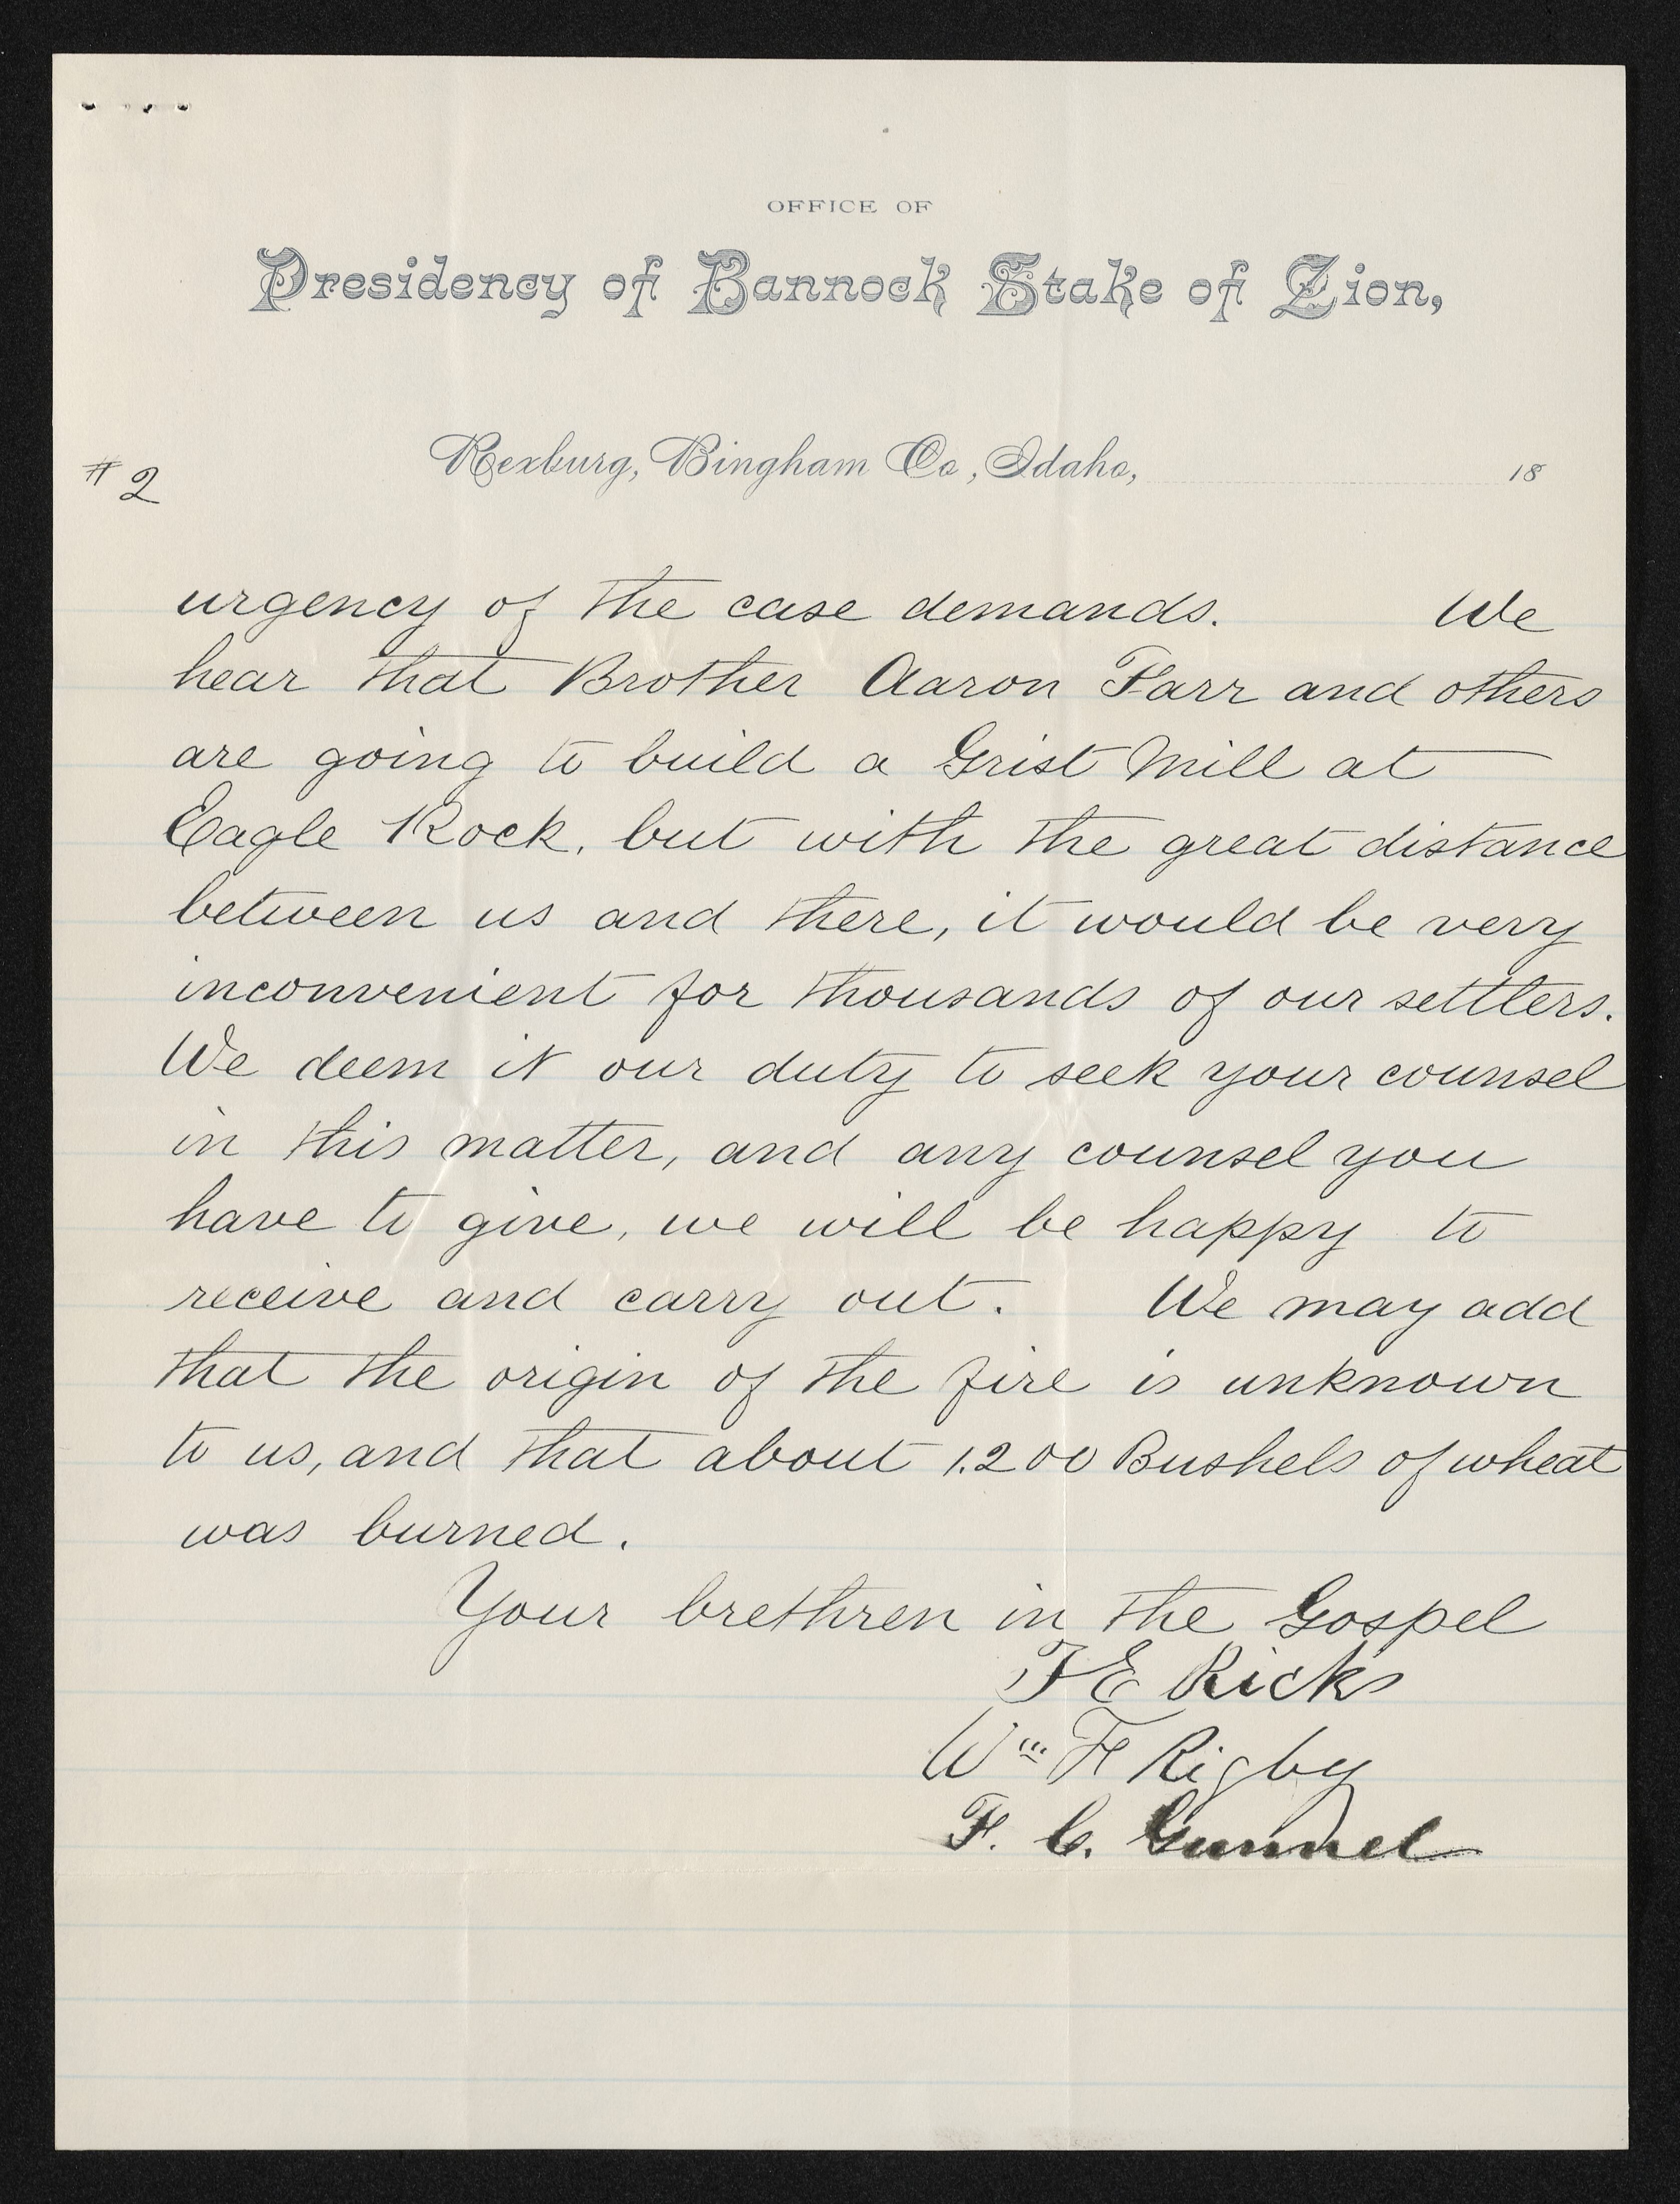 OFFICE OF
Presidency of Bannock Stake of Zion,
Rexburg, Bingham Co, Idaho, 18
#2
urgency of the case demands. We
hear that Brother Aaron Farr and others
are going to build a Grist Mill at
Eagle Rock, but with the great distance
between us and there, it would be very
inconvenient for thousands of our settlers.
We deem it our duty to seek your counsel
in this matter, and any counsel you
have to give, we will be happy to
receive and carry out. We may add
that the origin of the fire is unknown
to us, and that about 1.200 Bushels of wheat
was burned.
Your brethren in the Gospel
T E Ricks
Wm F Rigby
F. C. Gunnel